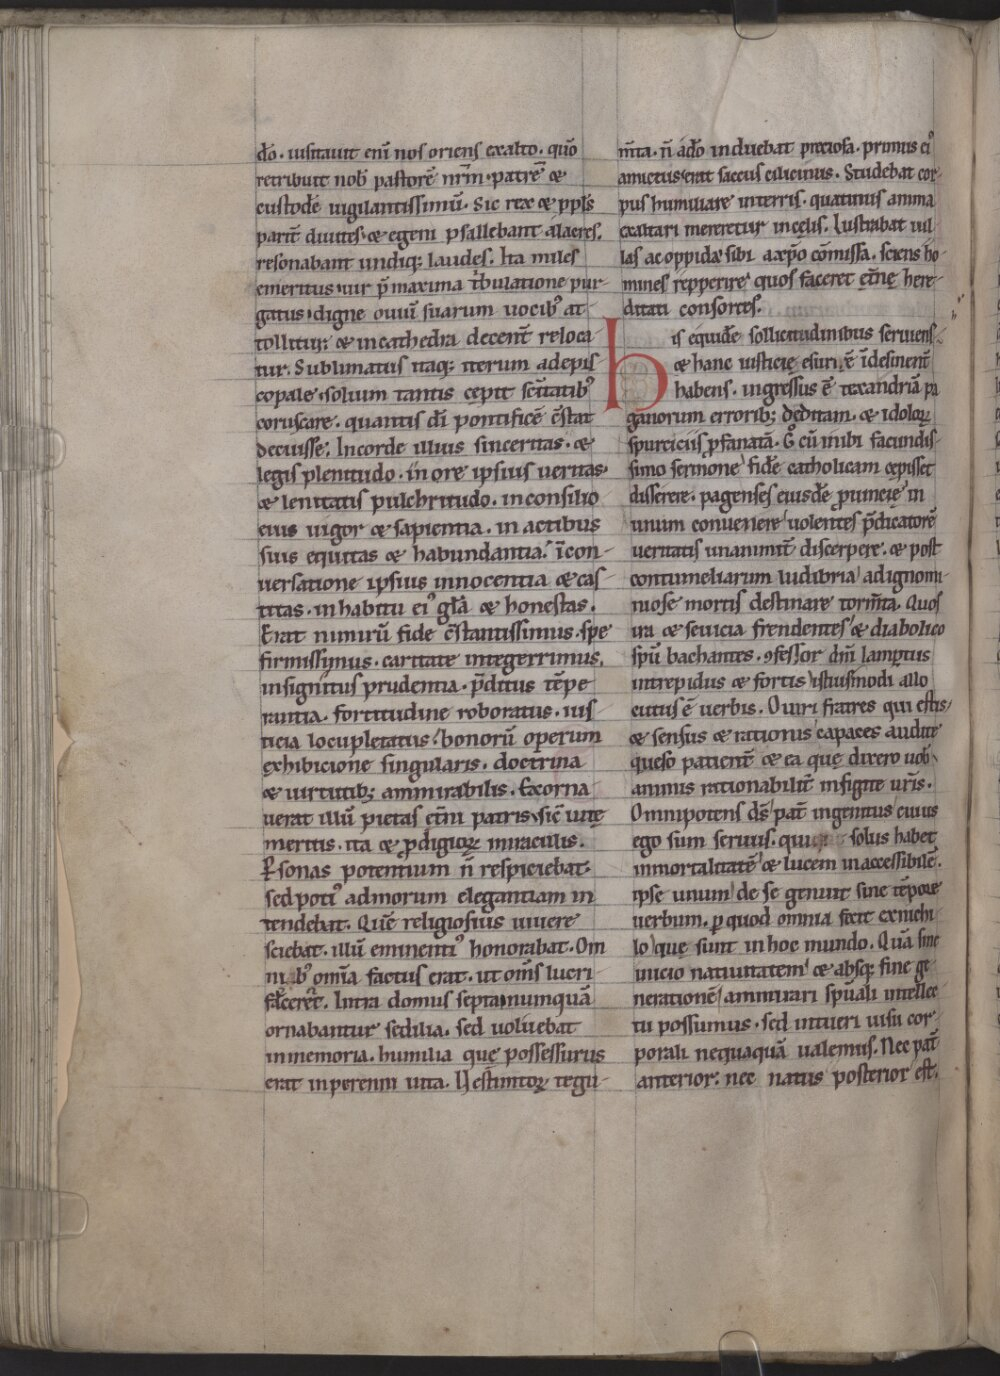 dō. uisitauit eni nos oriens exalto. quō
retribuit nob pastorē nrm. patrē &
custodē uigilantissimū. Sic rex & ppls
parit diuites. & egeni psallebant alacres.
resonabant undiq; laudes. Ita miles
emeritus. uir p maxima tbulatione pur-
gatus. digne ouiū suarum uocib at
tollitur. & in cathedra decent reloca
tur. Sublimatus itaq; iterum adepis
copale solium tantis cepit scitatib
coruscare. quantis di pontificē cstat
decuisse. In corde illius sinceritas. &
legis plenitudo. in ore ipsius ueritas.
& lenitatis pulchritudo. in consilio
eius uigor & sapientia. in actibus
suis equitas & habundantia. icon-
uersatione ipsius innocentia & cas-
titas. in habitu ei gla & honestas.
Erat nimirū fide cstantissimus. spe
firmissimus. caritate integerrimus.
insignitus prudentia. pditus tēpe
rantia. fortitudine roboratus. ius
ticia locupletatus. bonorū operum
exhibicione singularis. doctrina
& uirtutib; ammirabilis. Exorna
uerat illū pietas etni patris. sic uitę
meritis. ita & pdigiorꝝ miraculis.
Psonas potentium n respiciebat.
sed poti ad morum elegantiam in
tendebat. Quē religiosius uiuere
sciebat. illū eminenti honorabat. Om
nib omia factus erat. ut oms lucri-
faceret. Intra domus septa numquā
ornabantur sedilia. sed uoluebat
in memoria. humilia que possessurus
erat in perenni uita. Vestimtorꝝ tegu-
mta. n ado induebat preciosa. primus ei
amictus erat saccus cilicinus. Studebat cor-
pus humiliare in terris. quatinus anima
exaltari mereretur in celis. Lustrabat uil
las ac oppida sibi axpo cōmissa. sciens ho-
mines repperire quos faceret etnę here-
ditati consortes.
his equidē sollicitudinibus seruiens.
& hanc iusticię esuriē idesinent
habens. ingressus ē texandriā pa
ganorum errorib; deditam. & idolorꝝ
spurciciis pfanatā. G cū inibi facundis-
simo sermone fidē catholicam cepisset
disserere. pagenses eiusdē puincię in
unum conuenere uolentes pdicatorē
ueritatis unanimit discerpere. & post
contumeliarum ludibria ad ignomi-
niose mortis destinare tormta. Quos
ira & seuicia frendentes & diabolico
spu bachantes. 9fessor dni lamptus
intrepidus & fortis istiusmodi allo
cutus ē uerbis. O uiri fratres qui estis
& sensus & rationis capaces audite
queso patient & ea que dixero uob
animis rationabilit insigite uris.
Omnipotens ds pat ingenitus cuius
ego sum seruus. qui solus habet
inmortalitatē & lucem inaccessibilē.
ipse unum de se genuit sine tēpore
uerbum. p quod omnia fecit ex nichi
lo que sunt in hoc mundo. Quā sine
inicio natiuitatem & absq; fine ge-
nerationē ammirari spuali intellec
tu possumus. sed intueri uisu cor-
porali nequaquā ualemus. Nec pat
anterior. nec natus posterior est.